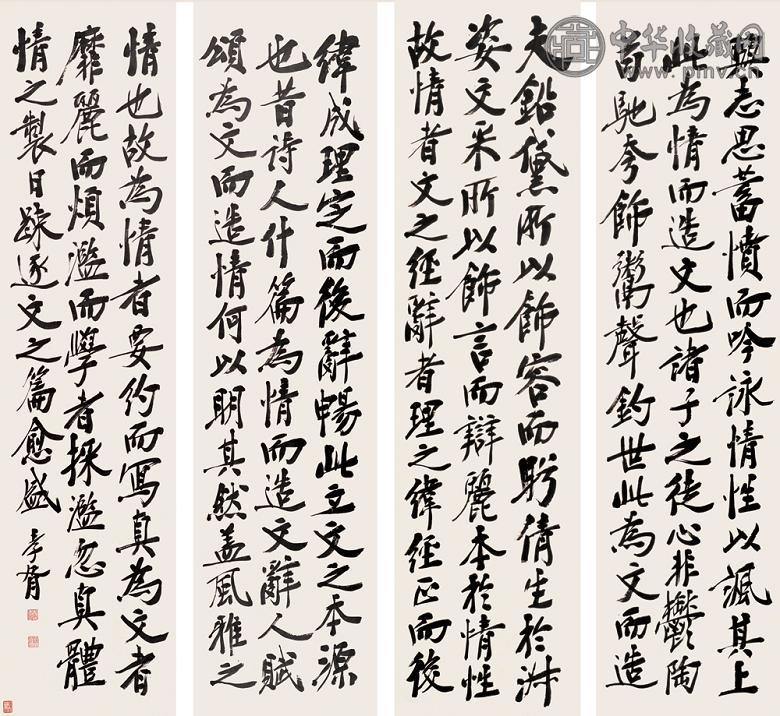 興志思蓄憤而吟詠情性以諷其上
此為情而造文也諸子之徒心非鬱陶
苟馳夸飾鬻聲釣世此為文而造
夫鉛黛所以飾容而盻倩生於淑
姿文采所以飾言而辯麗本於情性
故情者文之經辭者理之緯經正而後
緯成理定而後辭暢此立文之本源
也昔詩人什篇為情而造文辭人賦
頌為文而造情何以明其然蓋風雅之
情也故為情者要約而寫真為文者
靡麗而煩濫而學者採濫忽真體
情之製日踈逐文之篇愈盛 孝胥
中华收藏网
www.pmv.cn